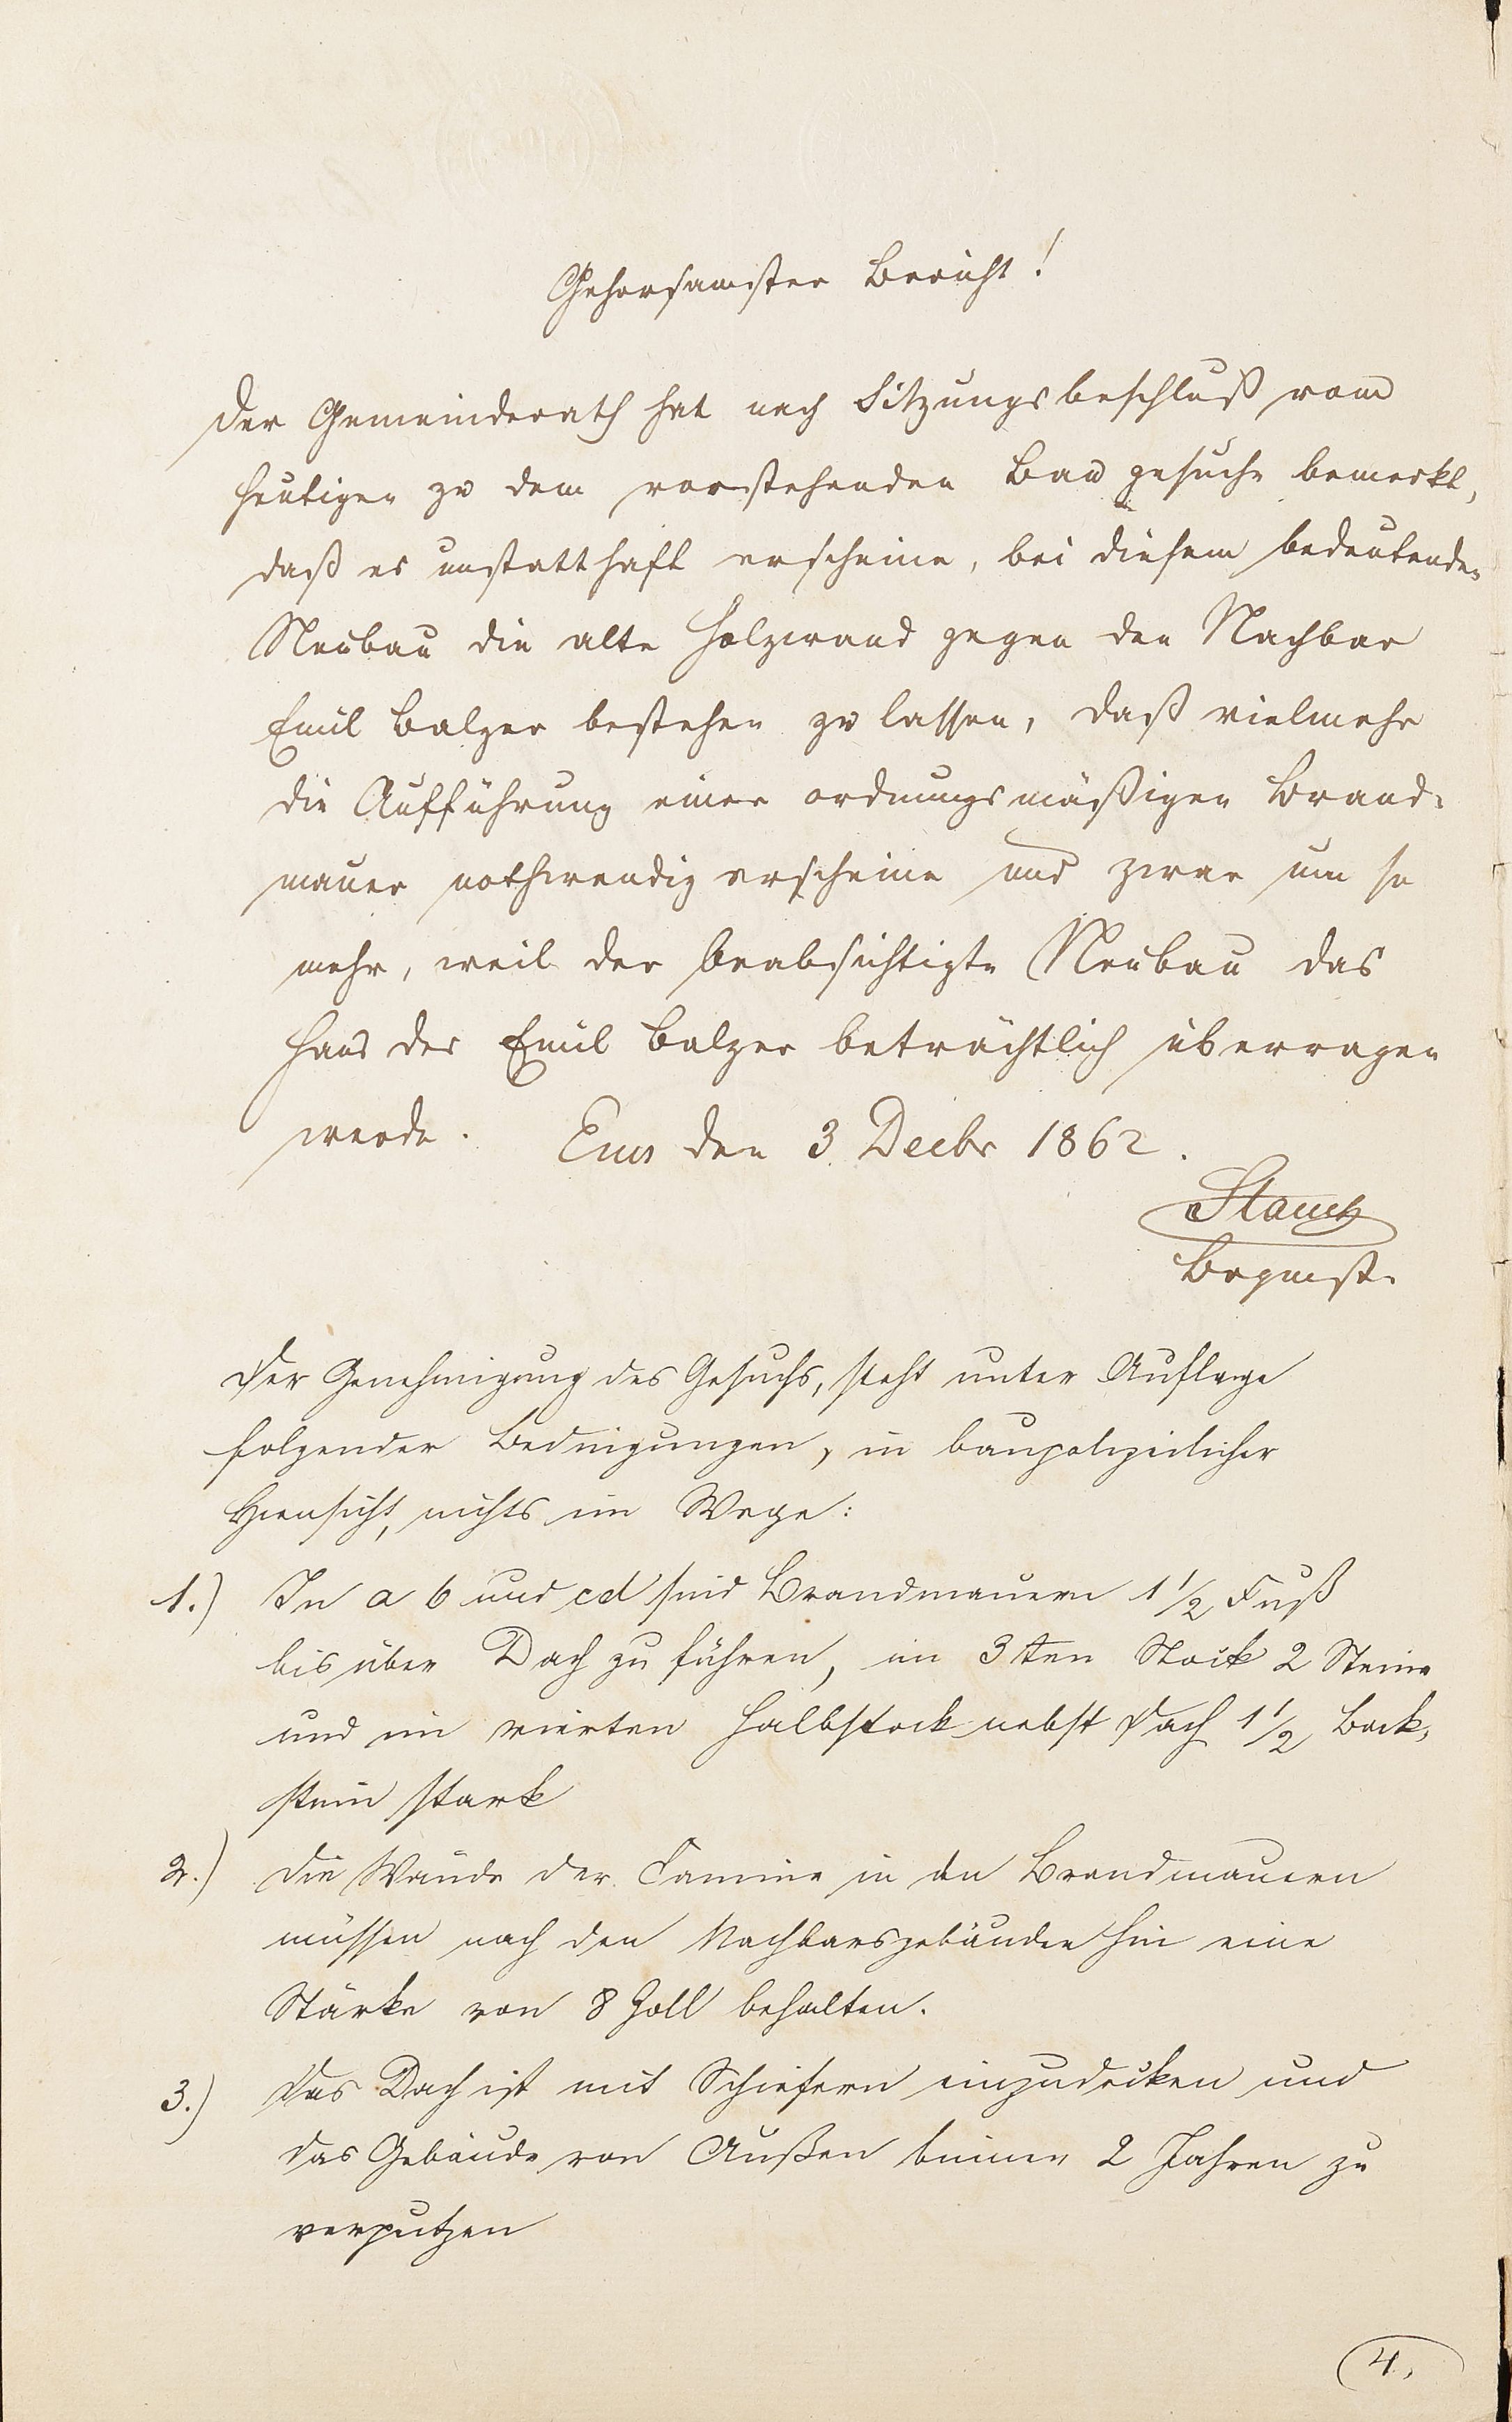 Gehorsamster Bericht!
Der Gemeinderath hat nach Sitzungsbeschluß vom
heutigen zu dem vorstehenden Bau gesuche bemerkt,
daß es unstatthaft erscheine, bei diesem bedeutenden
Neubau die alte Holzwand gegen den Nachbar
Emil Balzer bestehen zu lassen, daß vielmehr
die Aufführung einer ordnungsmäßigen Brand-
mauer nothwendig erscheine und zwar um so
mehr, weil der beabsichtigte Neubau das
Haus des Emil Balzer beträchtlich überragen
werde. Ems den 3 Decbr 1862.
Brgmstr.
Der Genehmigung des Gesuchs, steht unter Auflage
folgender Bedingungen, in baupolizeilicher
Hinsicht, nichts im Wege:
1.) In a b und cd sind Brandmauern 1 1/2 Fuß
bis über Dach zu führen, im 3ten Stock 2 Steine
und im vierten Halbstock nebst Dach 1 1/2 Back-
stein stark
2.) Die Wände der Camine in den Brandmauern
müssen nach den Nachbarsgebäuden hin eine
Stärke von 8 Zoll behalten.
3.) Das Dach ist mit Schiefern einzudecken und
das Gebäude von Außen binnen 2 Jahren zu
verputzen
4.